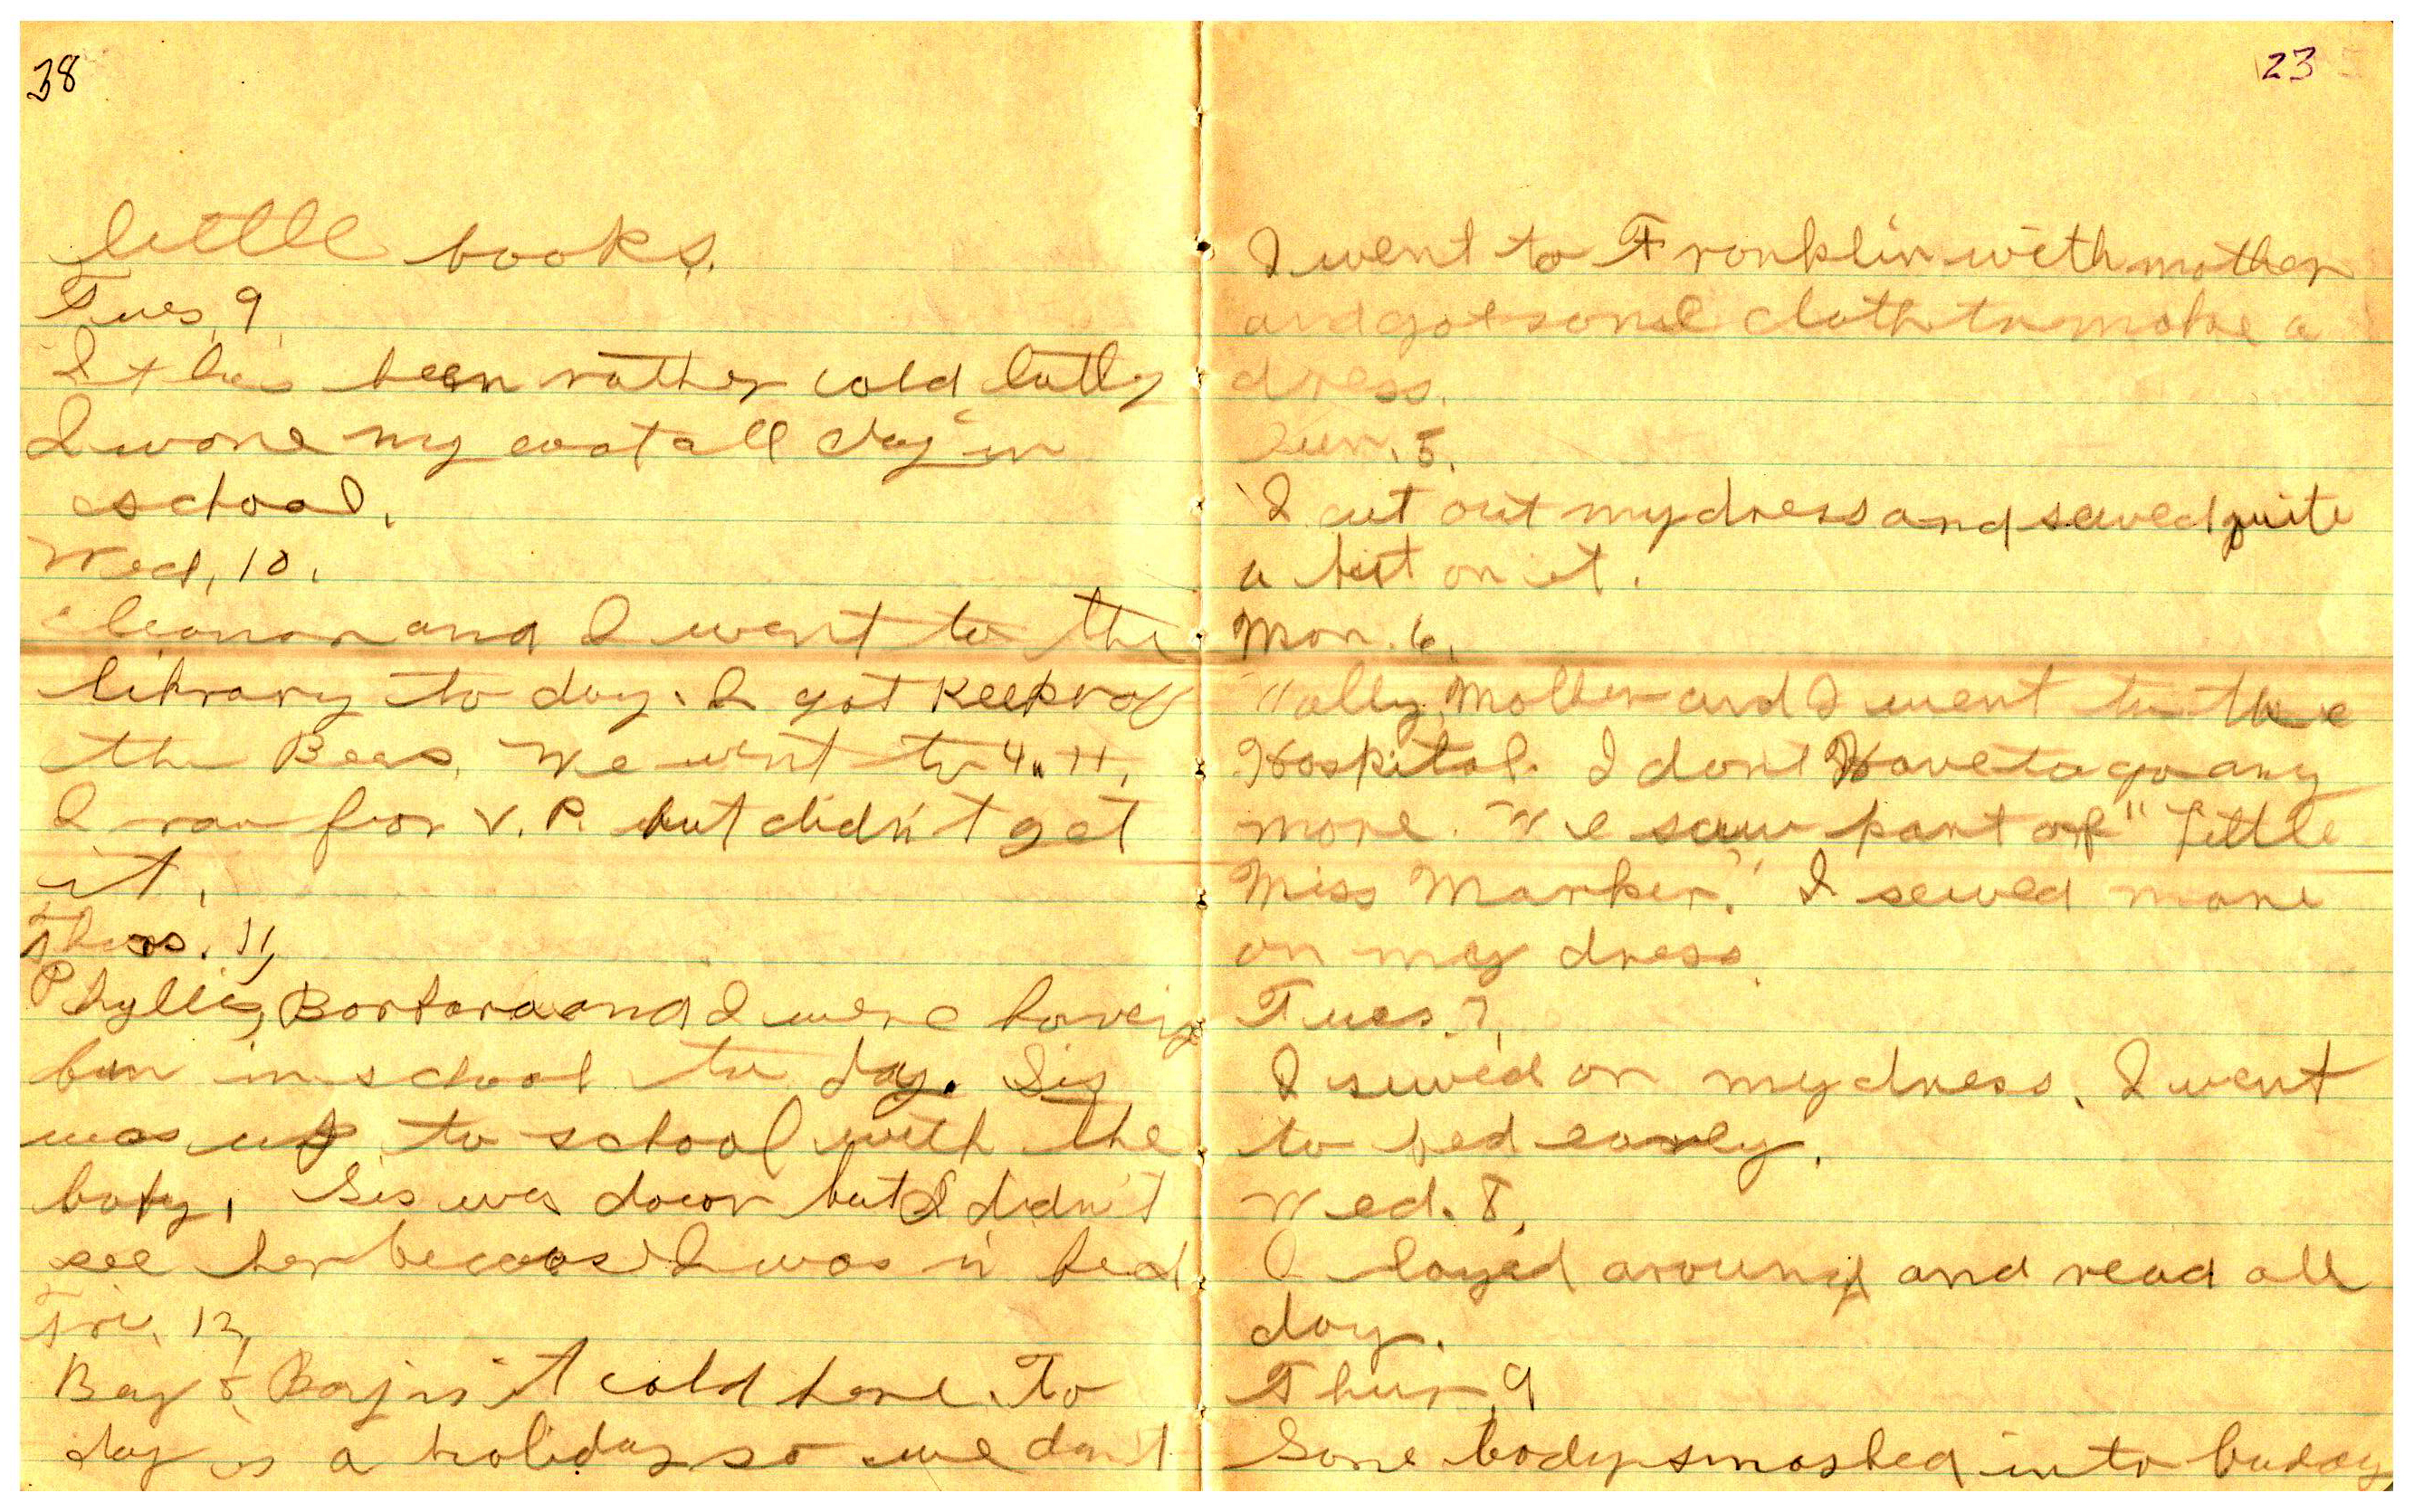 38
little books.
Tues, 9
It has been rather cold latly
I wore my coat all day in
school.
Wed, 10.
and I went to the
library to day. I got Keeper of
the Bees. We went to 4-H,
I ran for V. P. but didn't get
it.
Thurs. 11,
Phyllis, Barbara and I were having
fun in school to day. Sis
was up to school with the
baby. Sis was down but I didn't
see her because I was in bed.
Fri. 12,
Boy & Boy is it cold here. To
day is a holiday so we don't
23
I went to Franklin with mother
and got some cloth to make a
dress.
Sun. 5.
I cut out my dress and sewed quite
a bit on it.
Mon. 6.
Mother and I went to the
Hospital. I dont Have to go any
more. We saw part of "Little
Miss Marker." I sewed more
on my dress.
Tues. 7,
I sewed on my dress. I went
to bed early.
Wed. 8,
I layed around and read all
day.
Thur, 9
Some body smashed into